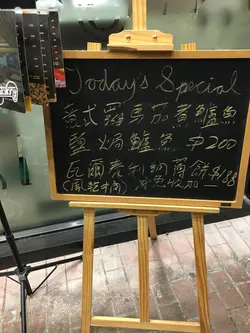 Today's Special
意式羅馬茄煮鱸魚
鹽焗鱸魚 ₱200
瓦爾泰利納薄餅 $188
(風乾牛肉)